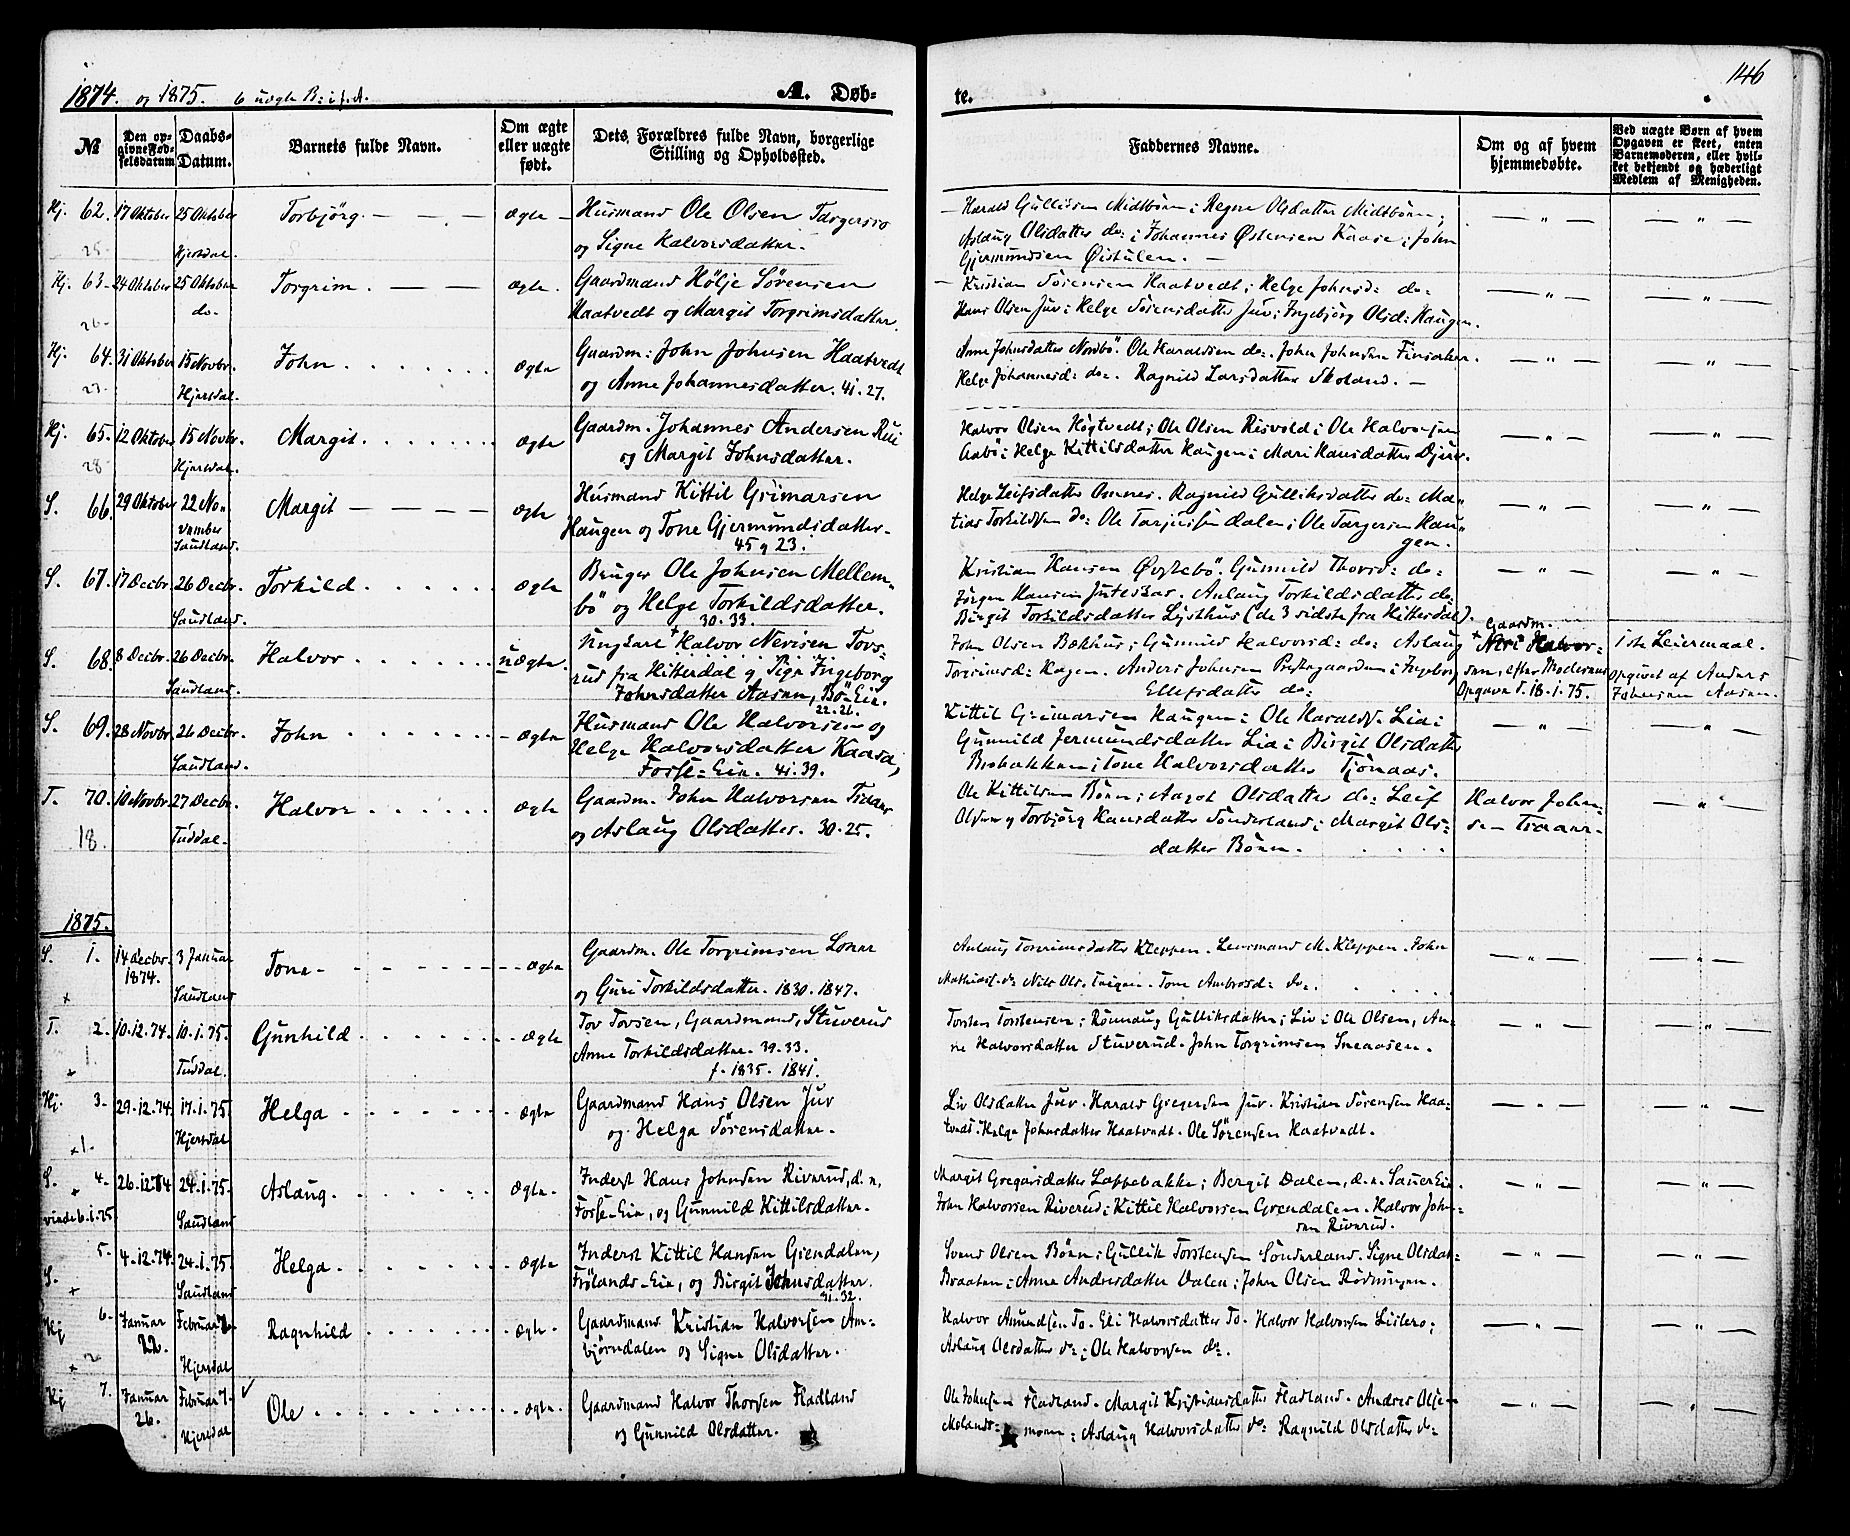 1874. og 1875. 6 uægte B: i f. A.
A. Døb-
te.
146
№
Den op-
givne Fød-
selsdatum
Daabs-
Datum.
Barnets fulde Navn.
Om ægte
eller uægte
født.
Dets Forældres fulde Navn, borgerlige
Stilling og Opholdssted.
Faddernes Navne.
Om og af hvem
hjemmedøbte.
Ved uægte Børn af hvem
Opgaven er skeet, enten
Barnemoderen, eller hvil-
ket bekjendt og hæderligt
Medlem af Menigheden.
Hj. 62. 17 Oktober 25 Oktober Torbjörg. — — — Ægte — Husmand Ole Olsen Targersro — Harald Gullissen Midtbøen; Regne Olsdatter Midtbøen; — " — — " —
25. Hjerdal. og Signe Halvorsdatter. Aslaug Olsdatter do: ; Johannes Østensen Kaase; John
Gjermundsen Øistulen. —
Hj. 63. 24 Oktober 25 Oktober Torgrim. — — Ægte. Gaardmand Hölje Sörensen — Kristian Sörensen Haatvedt; Helge Johnsd: do: — " — — " —
26. do. Haatvedt og Margit Torgrimsdatter. Hans Olsen Juv; Helge Sörensdatter Juv; Ingebjörg Olsd: Haugen.
Hj. 64. 31 Oktober 15 Novbr. John . . . . . . Ægte Gaardm: John Johnsen Haatvedt Anne Johnsdatter Nordbö. Ole Haraldsen do:. John Johnsen — " — — " —
27. Hjerdal. og Anne Johannesdatter. 41. 27. Helge Johannesd: do:. Ragnild Larsdatter Skoland. —
Hj. 65. 12 Oktober 15 Novbr. Margit. . . . . . Ægte Gaardm. Johannes Andersen Rui Halvor Olsen Högtvedt; Ole Olsen Risvold; Ole Halvorsen — " — — " —
28. Hjerdal. og Margit Johnsdatter. Aabö; Helge Kittilsdatter Haugen; Mari Hansdatter
S. 66. 29 Oktober 22 No- Margit — — — — Ægte Husmand Kittil Grimarsen Helge Leifsdatter Omnes. Ragnild Gulliksdatter do: Ma- — " — — " —
vember Haugen og Tone Gjermundsdatter. tias Torkildsen do: Ole Tarjussen Dalen; Ole Targersen Hau-
Saudland. 45 g 23. gen.
S. 67. 17 Decbr. 26 Decbr. Torkild . . . . . Ægte Bruger Ole Johnsen Mellem- Kristian Hansen Øvrebö. Gunnild Thorsd: do: — " — — " —
Saudland. bö og Helge Torkildsdatter. Jörgen Hansen Aslaug Torkildsdatter do:
30. 33. Birgit Torkildsdatter Lysthus (de 3 sidste fra Hitterdal).
S. 68. 8 Decbr. 26 Decbr. Halvor . . . . . uægte. Ungkarl + Halvor Nerisen Tovs- John Olsen Bækhus; Gunnild Halvorsd: do: Aslaug Gaardm. + Neri Halvor- 1ste Leiermaal.
Saudland. rud fra Hitterdal g Pige Ingeborg Torgrimsd: Hagen. Anders Johnsen Præstegaarden; Ingeborg sen, efter Moderens Opgivet af Anders
Johnsdatter Aasen, Bö-Eie. Ellefsdatter do: Opgave d. 18-1.75. Johnsen Aasen.
22. 26.
S. 69. 28 Novbr. 26 Decbr. John . . . . . . Ægte Husmand Ole Halvorsen og Kittil Grimarsen Haugen: Ole Haralds. Lia; — " — — " —
Saudland. Helge Halvorsdatter Kaasa, Gunnild Jermundsdatter Lia; Birgit Olsdatter
Forse-Eie. 41. 39. Brobakken; Tone Halvorsdatter Tjönaas.
T. 70. 10 Novbr. 27 Decbr. Halvor . . . . . Ægte Gaardm. John Halvorsen Tidaas Ole Kittilsen Bönn; Aagot Olsdatter do: Leif Halvor Johan- — " —
18. Tuddal. og Aslaug Olsdatter. 30. 25. Olsen g Torbjörg Hansdatter Sönderland; Margit Ols-
datter Bönn.
1875.
S. 1. 14 Decbr. 3 Januar Tone. - - - - - Ægte Gaardm. Ole Torgrimsen Lonar Aslaug Torgrimsdatter Kleppen. Lensmand M. Kleppen. John — " — — " —
+ 1874. Saudland og Guri Torkildsdatter. 1830. 1847. Mathias. do Nils Ols. Tone Ambrosd: do:.
T. 2. 10.12.74. 10.1.75. Gunhild. . . . . . Ægte Tov Tovsen, Gaardmand, Stuverud Torsten Torstensen; Rönnaug Gulliksdatter; Liv; Ole Olsen, An- — " — — " —
+ 1. Tuddal. Anne Torkildsdatter. 39. 33. ne Halvorsdatter Stuverud. John Torgrimsen Sneaasen.
f. 1835. 1841.
Hj. 3. 29.12.74. 17.1.75. Helga . . . . . Ægte Gaardmand Hans Olsen Juv Liv Olsdatter Juv. Harald Gregersen Juv. Kristian Sörensen Haa- — " — — " —
+1. Hjerdal og Helga Sörensdatter. tvedt. Helge Johnsdatter Haatvedt. Ole Sörensen Haatvedt.
S. 4. 26.12.74 24.1.75. Aslaug. . . . . Ægte. Inderst Hans Johnsen Riverud, d. e, Margit Gregarsdatter Loppebakke; Bergit Dalen, d. e. Sauer Eie. — " — — " —
+ 6.1.75. Saudland Forse-Eie, og Gunnild Kittilsdatter. John Halvorsen Riverud; Kittil Halvorsen Grendalen. Halvor John-
sen Riverud.
5. 4.12.74. 24.1.75. Helga. . . . . . Ægte Inderst Kittil Hansen Grendalen, Svend Olsen Bönn; Gullik Torstensen Sönderland. Signe Olsdat. — " — — " —
S. + Saudland Frölands-Eie, og Birgit Johnsdatter. Braaten; Anne Andersdatter Dalen; John Olsen Rödningen.
31. 32.
Hj 6. Januar Februar 7. Ragnhild . . . . . Ægte. Gaardmand Kristian Halvorsen Am- Halvor Amundsen To. Eli Halvorsdatter To. Halvor Halvorsen Lislero; — " — — " —
+ 2 22. Hjerdal bjørndalen og Signe Olsdatter. Aslaug Olsdatter do; Ole Halvorsen do.
Hj 7. Januar Februar 7. ✓ Ole . . . . . . Ægte. Gaardmand Halvor Thorsen Fladland Ole Johnsen Fladland. Margit Kristiansdatter Fladland. Andres Olse- — " — — " —
26. Hjerdal og Gunnild Olsdatter. Molands- moen; Aslaug Halvorsdatter do: Ragnild Olsdatter do: